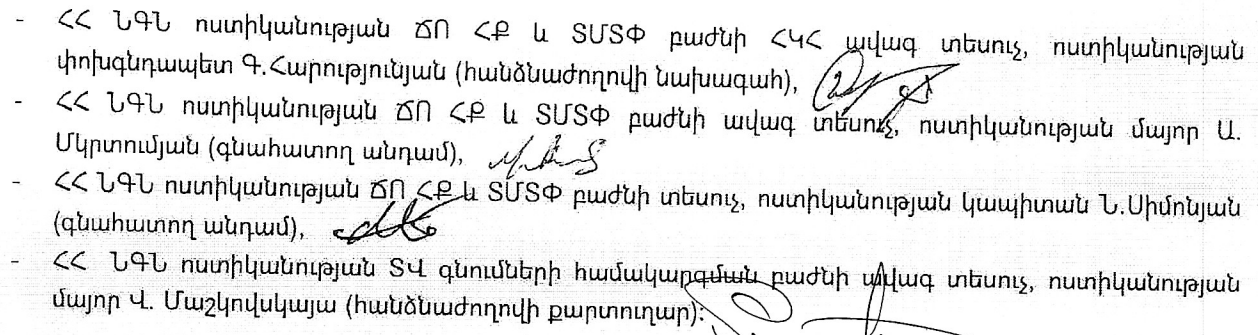 - ՀՀ ՆԳՆ ոստիկանության ՃՈ ՀՔ և ՏՄՏՓ բաժնի ՀԿՀ ավագ տեսուչ, ոստիկանության
փոխգնդապետ Գ.Հարությունյան (հանձնաժողովի նախագահ),
- ՀՀ ՆԳՆ ոստիկանության ՃՈ ՀՔ և ՏՄՏՓ բաժնի ավագ տեսուչ, ոստիկանության մայոր Ա.
Մկրտումյան (գնահատող անդամ),
- ՀՀ ՆԳՆ ոստիկանության ՃՈ ՀՔ և ՏՄՏՓ բաժնի տեսուչ, ոստիկանության կապիտան Ն.Սիմոնյան
(գնահատող անդամ),
- ՀՀ ՆԳՆ ոստիկանության ՏՎ գնումների համակարգման բաժնի ավագ տեսուչ, ոստիկանության
մայոր Վ. Մաշկովսկայա (հանձնաժողովի քարտուղար):